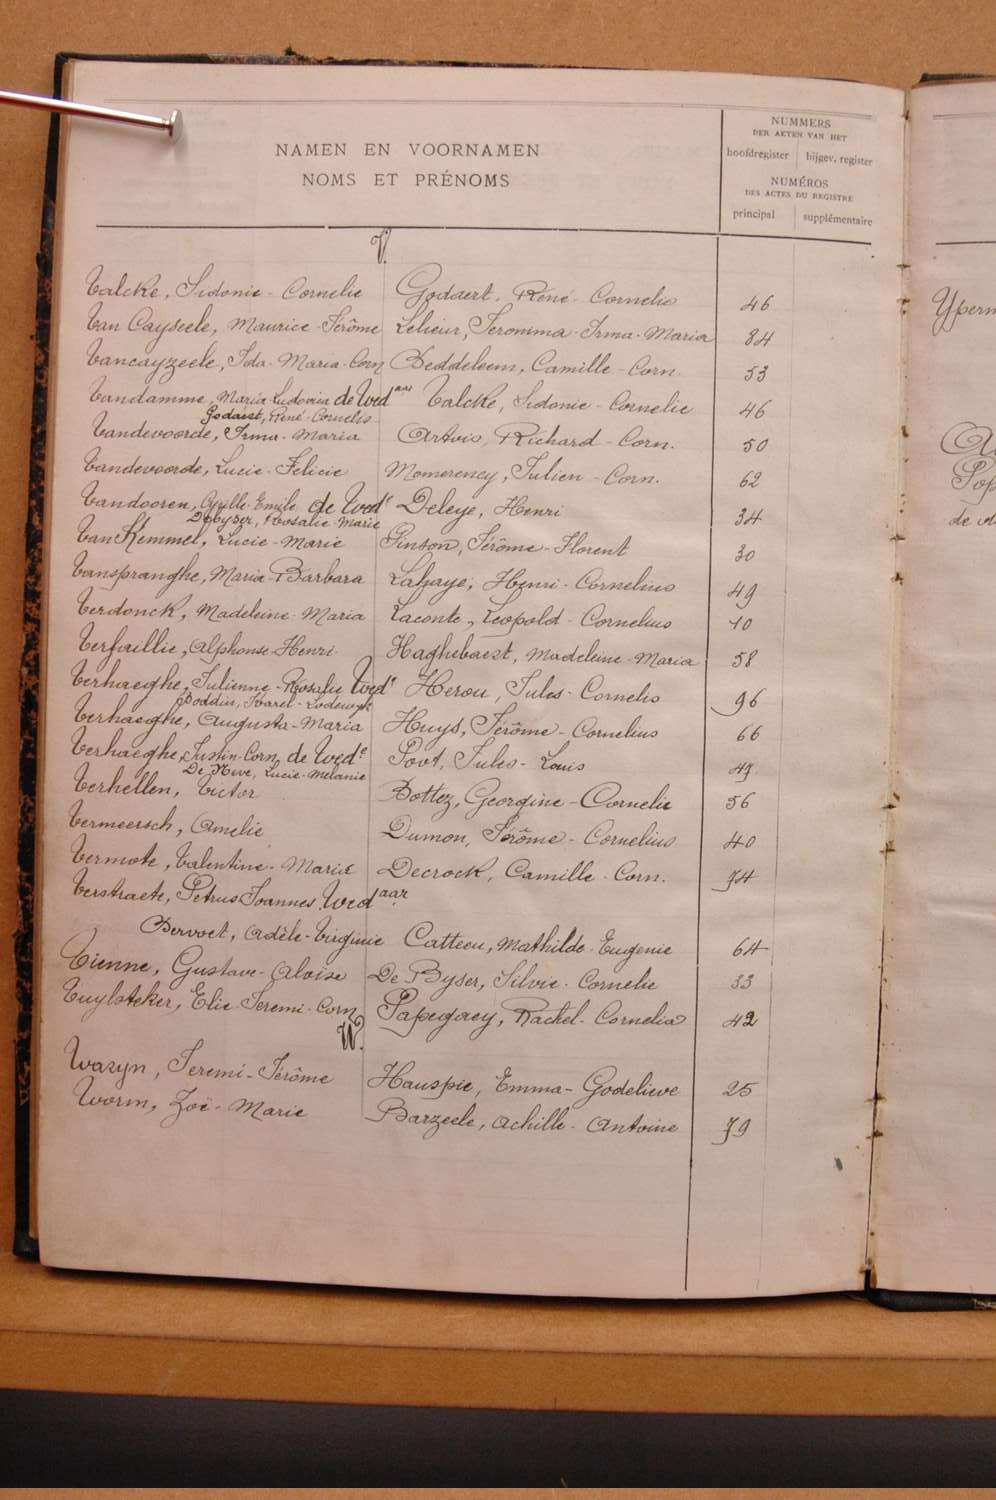 NAMEN EN VOORNAMEN
NOMS ET PRÉNOMS
NUMMERS
DER AKTEN VAN HET
hoofdregister bijgev. register
NUMÉROS
DES ACTES DU REGISTRE
principal supplémentaire
V.
Valcke, Sidonie - Cornelie Godaert, René - Cornelis 46
Van Cayseele, Maurice - Jérôme Lelieur, Jeromma - Irma - Maria 84
Vancayzeele, Ida - Maria - Corn Beddeleem, Camille - Corn. 53
Vandamme, Maria - Ludovica de Wed aar Valcke, Sidonie - Cornelie 46
Godaert, René - Cornelis
Vandevoorde, Irma - Maria Artvis, Richard - Corn. 50
Vandevoorde, Lucie - Felicie Momerency, Julien - Corn. 62
Vandooren, Cyille - Emile de Wed e Deleye, Henri 34
Debyser, Rosalie - Marie
Van Kemmel, Lucie - Marie Pinson, Jérôme - Florent 30
Vanspranghe, Maria - Barbara Lahaye, Henri - Cornelius 49
Verdonck, Madeleine - Maria Laconte, Leopold - Cornelius 10
Verfaillie, Alphonse - Henri Haghebaert, Madeleine - Maria 58
Verhaeghe, Julienne - Rosalie Wed e Herou, Jules - Cornelis 96
Boddin, Karel - Lodewyk
Verhaeghe, Augusta - Maria Huys, Jérôme - Cornelius 66
Verhaeghe, Justin - Corn, de Wed e Povt, Jules - Louis 47
De Neve, Lucie - Melanie
Verhellen, Victor Bottez, Georgine - Cornelie 56
Vermeersch, Amelie Dumon, Jérôme - Cornelius 40
Vermote, Valentine - Marie Decrock, Camille - Corn. 74
Verstraete, Petrus Joannes Wed aar
Bervoet, Adèle - Virginie Catteeu, Mathilde - Eugenie 64
Vienne, Gustave - Aloise De Byser, Silvie - Cornelie 33
Vuylsteker, Elie - Jeremi - Corn Papegaey, Rachel - Cornelia 42
W.
Wazyn, Jeremi - Jérôme Hauspie, Emma - Godelieve 25
Worm, Zoë - Marie Barzeele, Achille - Antoine 79
Yperm
Pop
de